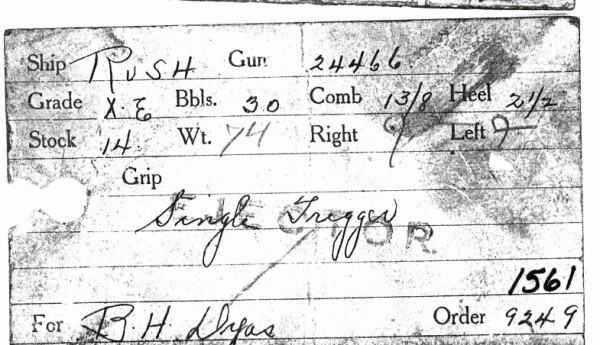 Ship RUSH Gun 24466.
Grade X.E Bbls. 30 Comb 1 3/8 Heel 2 1/2
Stock 14. Wt. 74 Right 9 Left 9
Grip
Single Trigger
EJECTOR
1561
For B.H. Dyas Order 9249